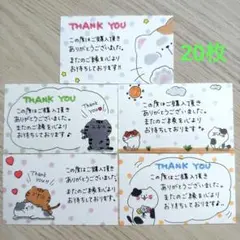 THANK YOU
20枚
この度はご購入頂き
ありがとうございました。
またのご縁を心より
お待ちしております!!
THANK YOU
この度はご購入頂き
ありがとうございました。
またのご縁を心より
お待ちしております。
Thank you♥
THANK YOU
この度はご購入頂き
ありがとうございました。
またのご縁を心より
お待ちしております。
Thank you!
この度はご購入頂き
ありがとうございました。
またのご縁を心より
お待ちしております。
THANK YOU
この度はご購入頂き
ありがとうございました。
またのご縁を心より
お待ちしております。